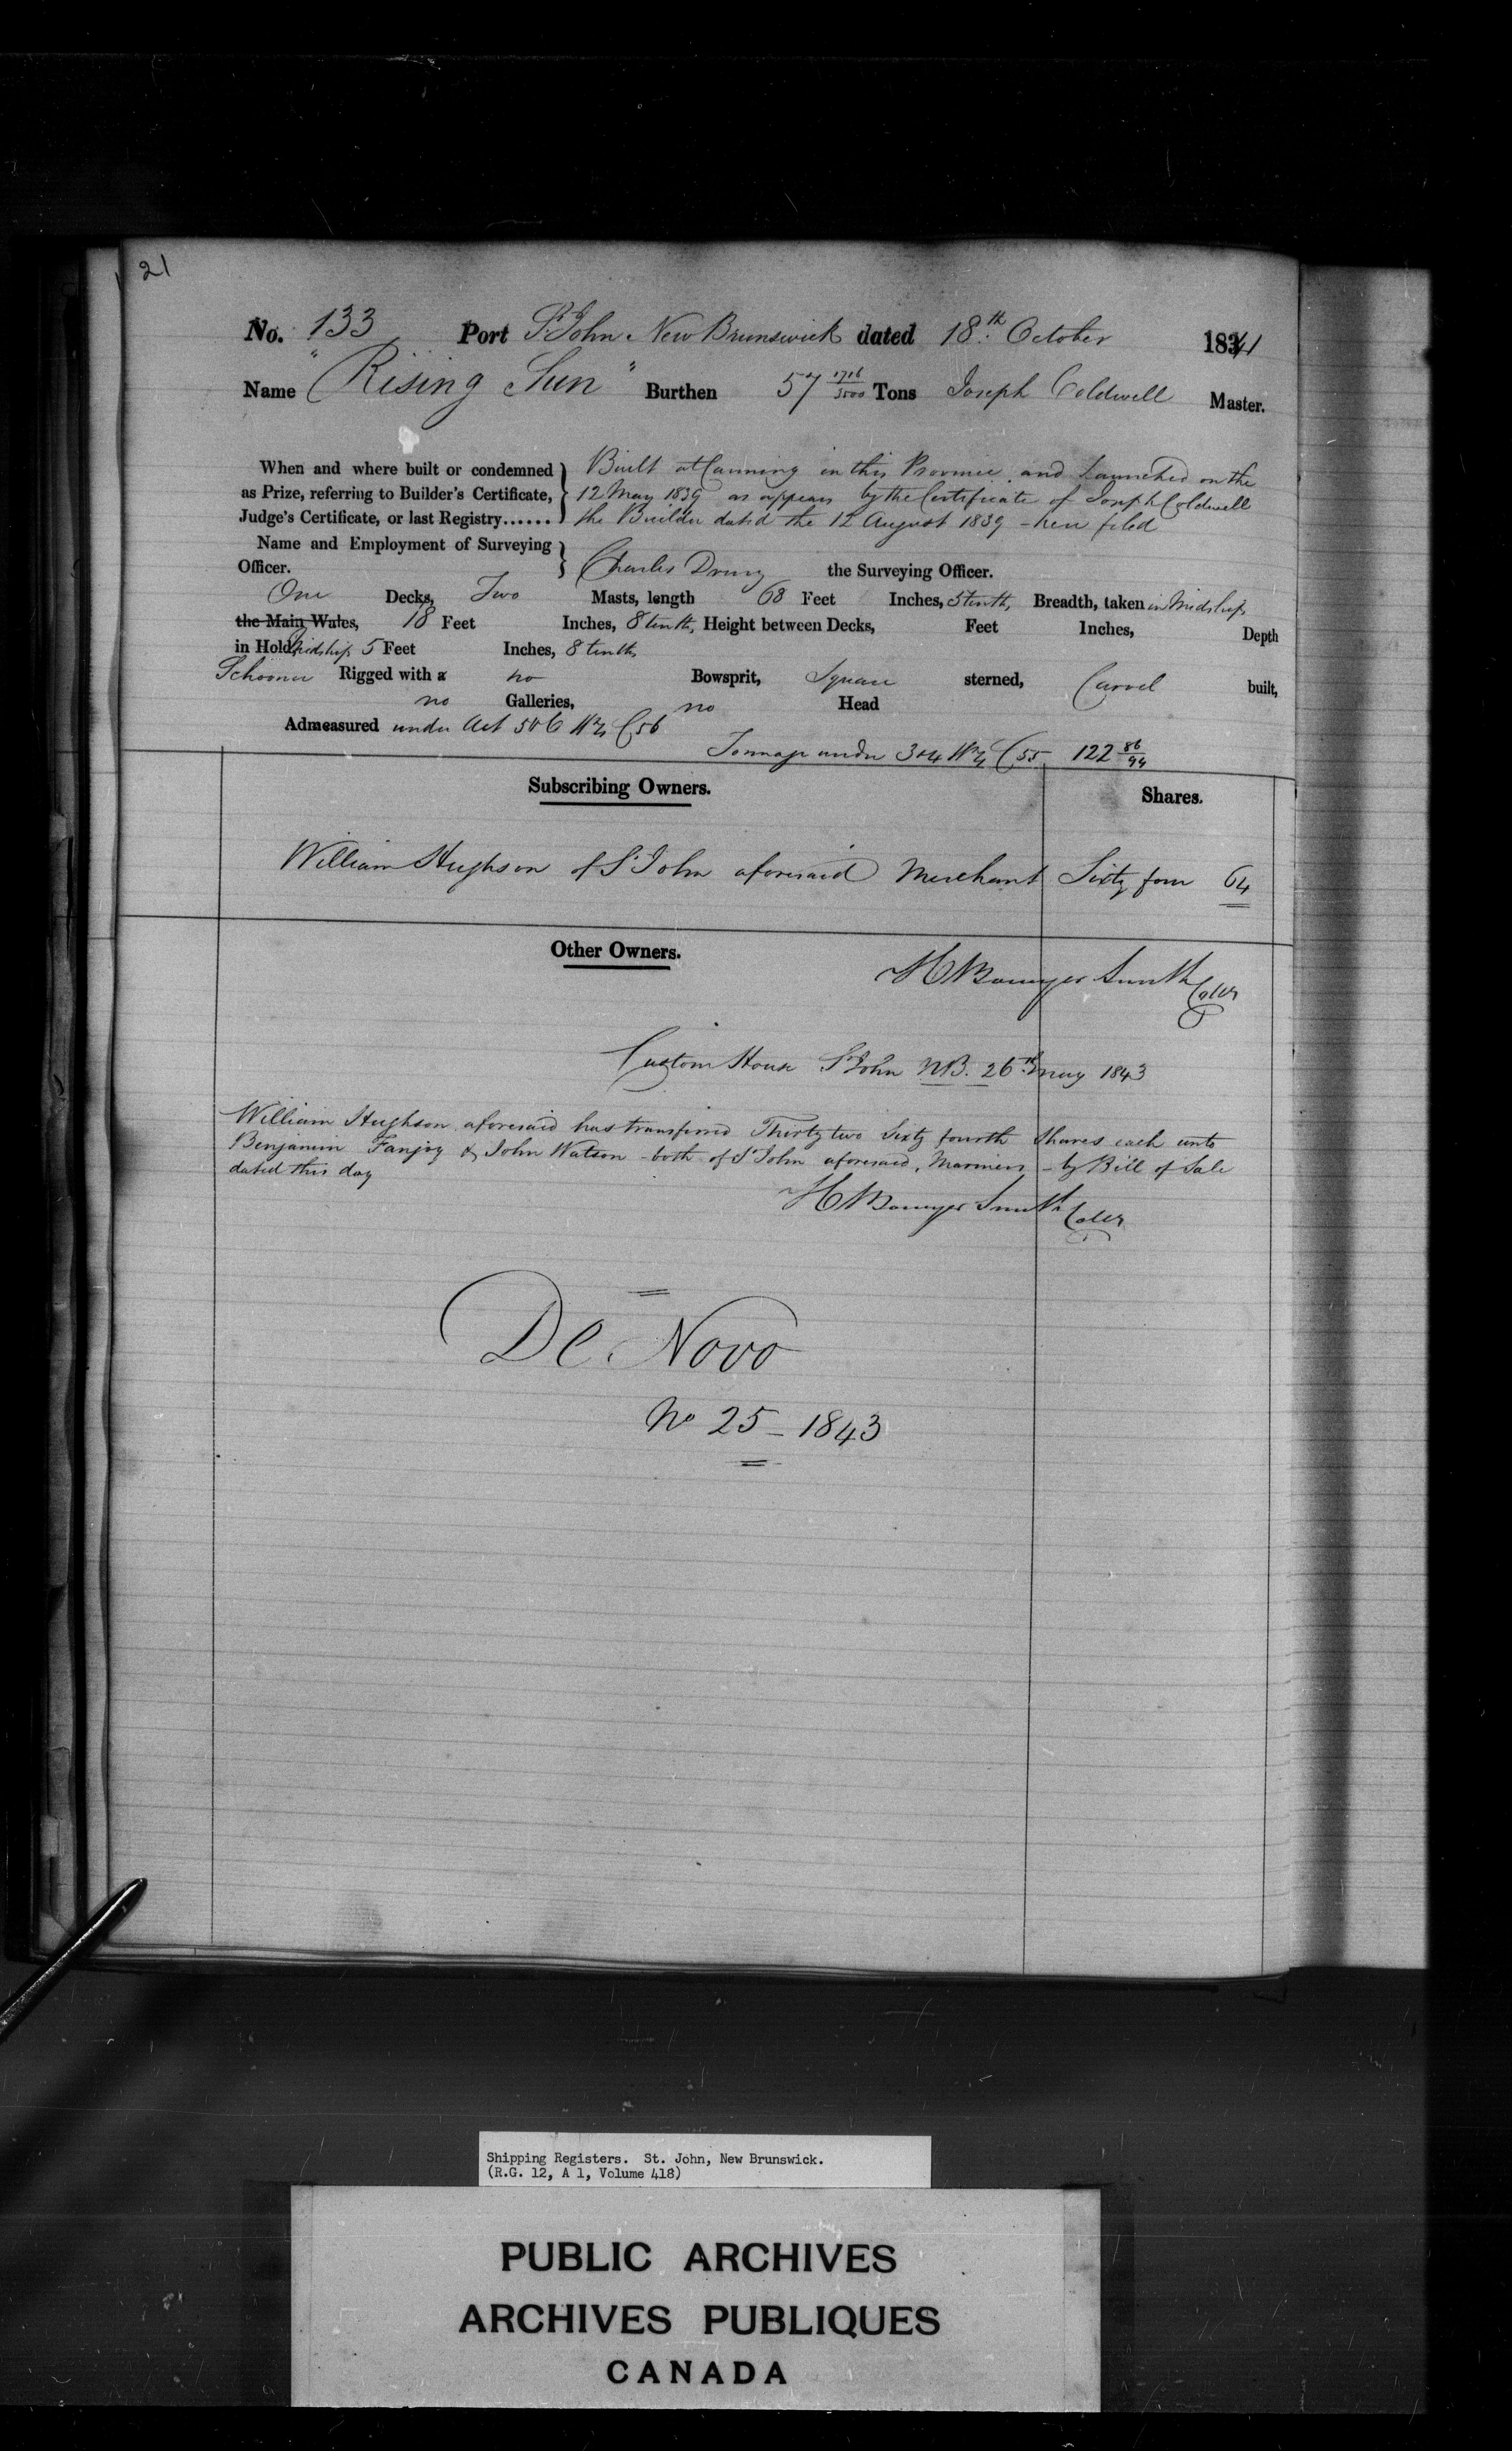 21
No. 133 Port St John New Brunswick dated 18th October 1841
Name "Rising Sun" Burthen 57 1716/3500 Tons Joseph Coldwell Master.
When and where built or condemned as Prize, referring to Builder's Certificate, Judge's Certificate, or last Registry......
Built at Canning in this Province and Launched on the
12 May 1839 as appears by the Certificate of Joseph Coldwell
the Builder dated the 12 August 1839 - here filed
Name and Employment of Surveying Officer.
Charles Drury the Surveying Officer.
One Decks, Two Masts, length 68 Feet Inches, 5 tenths, Breadth, taken in Midships
the Main Wales, 18 Feet Inches, 8 tenths, Height between Decks, Feet Inches, Depth
in Hold Midships 5 Feet Inches, 8 tenths
Schooner Rigged with a no Bowsprit, Square sterned, Carvel built,
no Galleries, no Head
Admeasured under Act 5 & 6 Wm 4 C 56
Tonnage under 3 & 4 Wm 4 C 55 122 86/94
Subscribing Owners. Shares.
William Hughson of St John aforesaid Merchant Sixty four 64
Other Owners.
H Bowyer Smith Collr
Custom House St John NB. 26th May 1843
William Hughson aforesaid has transferred Thirty two Sixty fourth Shares each unto
Benjamin Fanjoy & John Watson - both of St John aforesaid, Mariners - by Bill of Sale
dated this day
H Bowyer Smith Collr
De Novo
No 25 - 1843
Shipping Registers. St. John, New Brunswick.
(R.G. 12, A 1, Volume 418)
PUBLIC ARCHIVES
ARCHIVES PUBLIQUES
CANADA